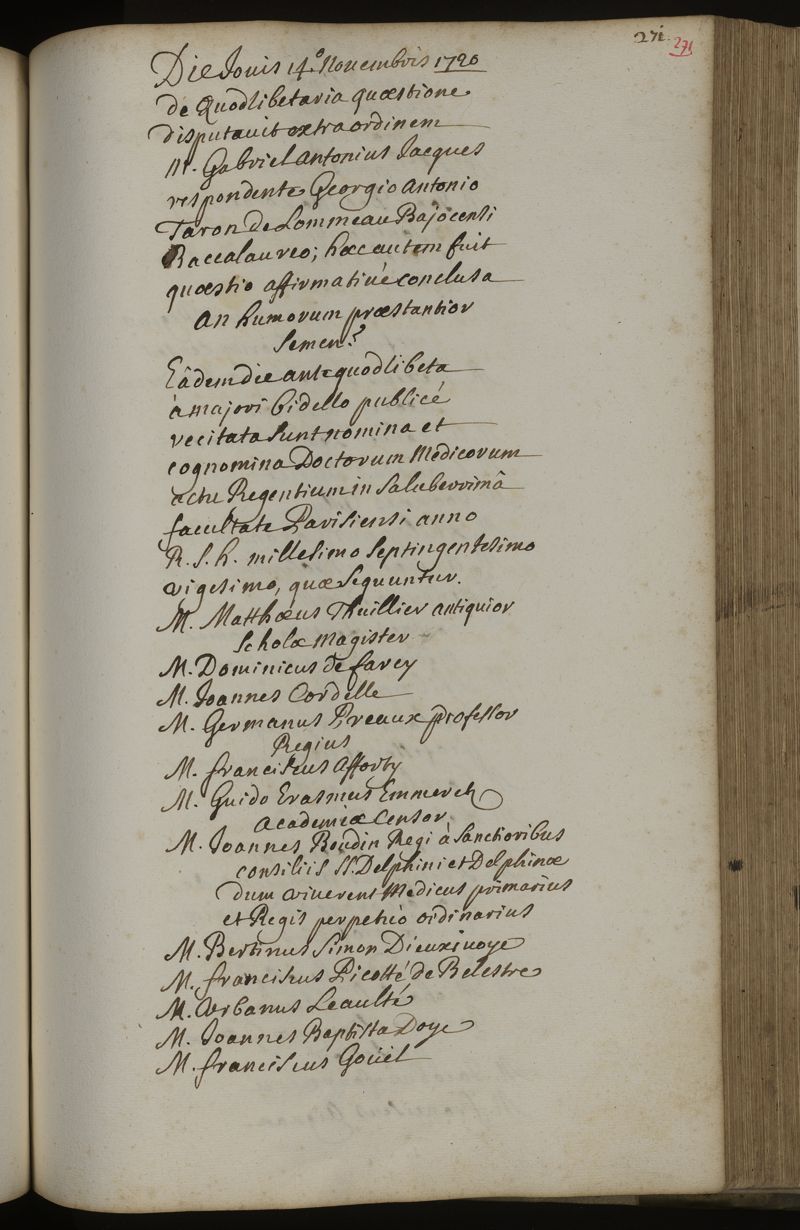 271.
271
Die Jovis 14.º Novembris 1720
de Quodlibetaria quæstione
disputavit extra ordinem
M. Gabriel Antonius Jacques
respondente Georgio Antonio
Taron de Lommeau Bajocensi
Baccalaureo; hæc autem fuit
quæstio affirmativè conclusa
An humorum præstantior
Semen?
Eâdem die ante quodlibeta
à majori bidello publicè
recitata sunt nomina et
cognomina Doctorum Medicorum
actu Regentium in Saluberrimâ
facultate Parisiensi anno
R. S. h. millesimo Septingentesimo
vigesimo, quæ Sequuntur.
M. Matthæus Thuillier antiquior
Scholæ Magister
M. Dominicus de farcy
M. Joannes Cordelle
M. Germanus Preaux professor
Regius
M. franciscus Afforty
M. Guido Erasmus Emmerch
Academiæ Censor
M. Joannes Boudin Regi à Sanctioribus
consiliis SS. Delphini et Delphinæ
dum viverent Medicus primarius
et Regis perpetuò ordinarius
M. Bertinus Simon Dieuxivoye
M. franciscus Picotté de Belestre
M. Urbanus Leaulté
M. Joannes Baptista Doye
M. franciscus Goüel